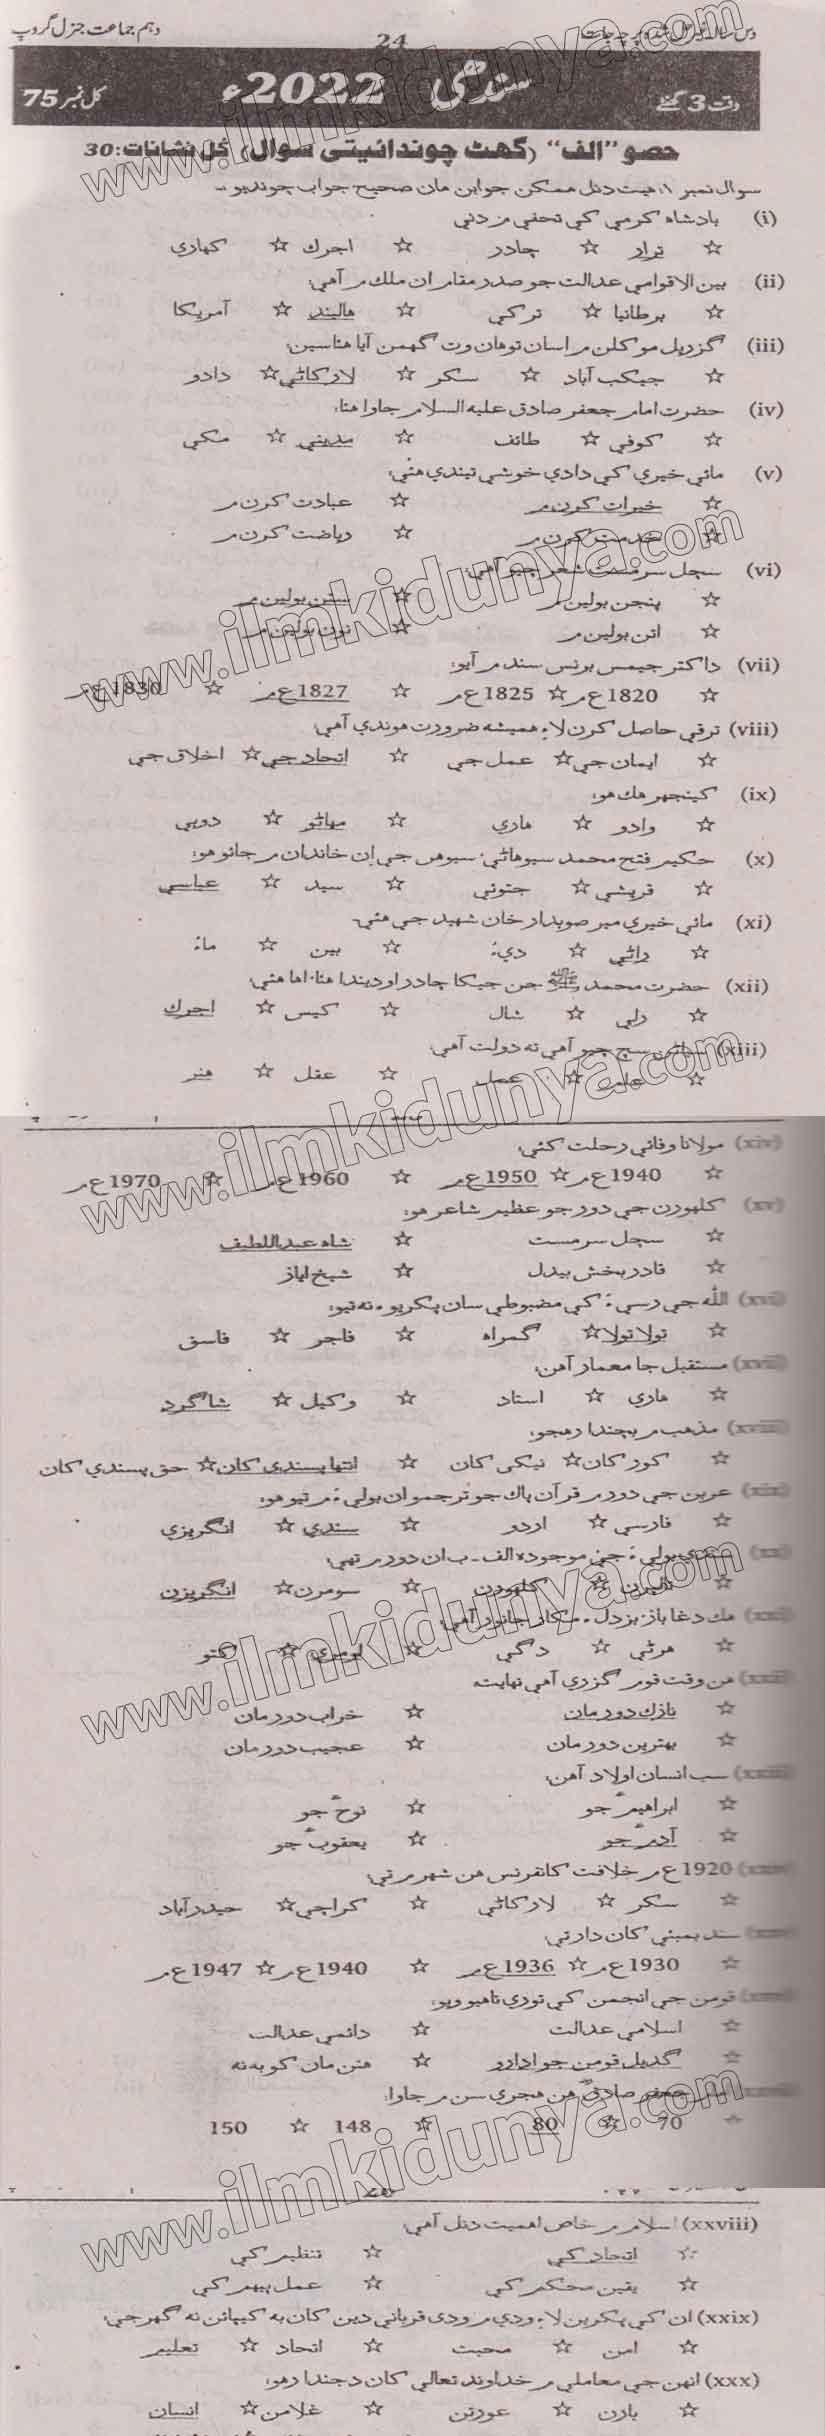 دس سالہ حل شدہ پرچہ جات 24 دہم جماعت جنرل گروپ
وقت 3 گھنٹے سندھی 2022ء کل نمبر 75
حصو "الف" (گهٽ چونڊائيتي سوال) کُل نشانات: 30
سوال نمبر ۱: هيٺ ڏنل ممڪن جوابن مان صحيح جواب چونڊيو ۔
(i) بادشاهه ڪرمي کي تحفي ۾ ڏني
☆ ترار ☆ چادر ☆ اجرڪ ☆ ڪهاڙي
(ii) بين الاقوامي عدالت جو صدر مقام ان ملڪ ۾ آهي:
☆ برطانيا ☆ ترڪي ☆ هالينڊ ☆ آمريڪا
(iii) گزريل موڪلن ۾ اسان توهان وٽ گهمڻ آيا هئاسين:
☆ جيڪب آباد ☆ سکر ☆ لاڙڪاڻي ☆ دادو
(iv) حضرت امام جعفر صادق عليه السلام ڄاوا هئا:
☆ ڪوفي ☆ طائف ☆ مديني ☆ مڪي
(v) مائي خيري کي ڏاڍي خوشي ٿيندي هئي:
☆ خيرات ڪرڻ ۾ ☆ عبادت ڪرڻ ۾
☆ خدمت ڪرڻ ۾ ☆ رياضت ڪرڻ ۾
(vi) سچل سرمست شعر چيو آهي:
☆ پنجن ٻولين ۾ ☆ ستن ٻولين ۾
☆ اٺن ٻولين ۾ ☆ نون ٻولين ۾
(vii) ڊاڪٽر جيمس برنس سنڌ ۾ آيو:
☆ 1820ع ۾ ☆ 1825ع ۾ ☆ 1827ع ۾ ☆ 1830ع ۾
(viii) ترقي حاصل ڪرڻ لاءِ هميشه ضرورت هوندي آهي:
☆ ايمان جي ☆ عمل جي ☆ اتحاد جي ☆ اخلاق جي
(ix) ڪينجهر هڪ هو:
☆ واڍو ☆ هاري ☆ مهاڻو ☆ ڌوٻي
(x) حڪيم فتح محمد سيوهاڻي، سيوهڻ جي اِن خاندان ۾ ڄائو هو:
☆ قريشي ☆ جتوئي ☆ سيد ☆ عباسي
(xi) مائي خيري مير صوبدار خان شهيد جي هئي۔
☆ راڻي ☆ ڌيءُ ☆ ڀيڻ ☆ ماءُ
(xii) حضرت محمد ﷺ جن جيڪا چادر اوڍيندا هئا، اها هئي:
☆ رلي ☆ شال ☆ کيس ☆ اجرڪ
(xiii) سچ چيو آهي ته دولت آهي:
☆ علم ☆ عمل ☆ عقل ☆ هنر
(xiv) مولانا وفائي رحلت ڪئي:
☆ 1940ع ۾ ☆ 1950ع ۾ ☆ 1960ع ۾ ☆ 1970ع ۾
(xv) ڪلهوڙن جي دور جو عظيم شاعر هو:
☆ سچل سرمست ☆ شاهه عبداللطيف
☆ قادر بخش بيدل ☆ شيخ اياز
(xvi) الله جي رسيءَ کي مضبوطي سان پڪڙيو ۽ نه ٿيو:
☆ ٽولا ٽولا ☆ گمراهه ☆ فاجر ☆ فاسق
(xvii) مستقبل جا معمار آهن:
☆ هاري ☆ استاد ☆ وڪيل ☆ شاگرد
(xviii) مذهب ۾ بچندا رهجو:
☆ ڪوڙ کان ☆ نيڪي کان ☆ انتها پسندي کان ☆ حق پسندي کان
(xix) عربن جي دور ۾ قرآن پاڪ جو ترجمو ان ٻوليءَ ۾ ٿيو هو:
☆ فارسي ☆ اردو ☆ سنڌي ☆ انگريزي
(xx) سنڌي ٻوليءَ جي موجوده الف ۔ ب ان دور ۾ ٺهي:
☆ ٽالپرن ☆ ڪلهوڙن ☆ سومرن ☆ انگريزن
(xxi) هڪ دغاباز، بزدل ۽ مڪار جانور آهي:
☆ هرڻي ☆ ڍڳي ☆ لومڙي ☆ ڪتو
(xxii) هن وقت قوم گزري آهي نهايت:
☆ نازڪ دور مان ☆ خراب دور مان
☆ بهترين دور مان ☆ عجيب دور مان
(xxiii) سڀ انسان اولاد آهن:
☆ ابراهيمؑ جو ☆ نوحؑ جو
☆ آدمؑ جو ☆ يعقوبؑ جو
(xxiv) 1920ع ۾ خلافت ڪانفرنس هن شهر ۾ ٿي:
☆ سکر ☆ لاڙڪاڻي ☆ ڪراچي ☆ حيدرآباد
(xxv) سنڌ بمبئي کان ڌار ٿي:
☆ 1930ع ۾ ☆ 1936ع ۾ ☆ 1940ع ۾ ☆ 1947ع ۾
قومن جي انجمن کي ٽوڙي ٺاهيو ويو:
☆ اسلامي عدالت ☆ دائمي عدالت
☆ گڏيل قومن جو ادارو ☆ هنن مان ڪو به نه
جعفر صادقؑ هن هجري سن ۾ ڄاوا:
☆ 70 ☆ 80 ☆ 148 ☆ 150
(xxviii) اسلام ۾ خاص اهميت ڏنل آهي:
☆ اتحاد کي ☆ تنظيم کي
☆ يقين محڪم کي ☆ عمل پيهم کي
(xxix) ان کي پکيڙڻ لاءِ وڏي ۾ وڏي قرباني ڏيڻ کان به ڪيٻائڻ نه گهرجي:
☆ امن ☆ محبت ☆ اتحاد ☆ تعليم
(xxx) انهن جي معاملي ۾ خداوند تعاليٰ کان ڊڄندا رهو:
☆ ٻارن ☆ عورتن ☆ غلامن ☆ انسان
www.ilmkidunya.com
www.ilmkidunya.com
www.ilmkidunya.com
www.ilmkidunya.com
www.ilmkidunya.com